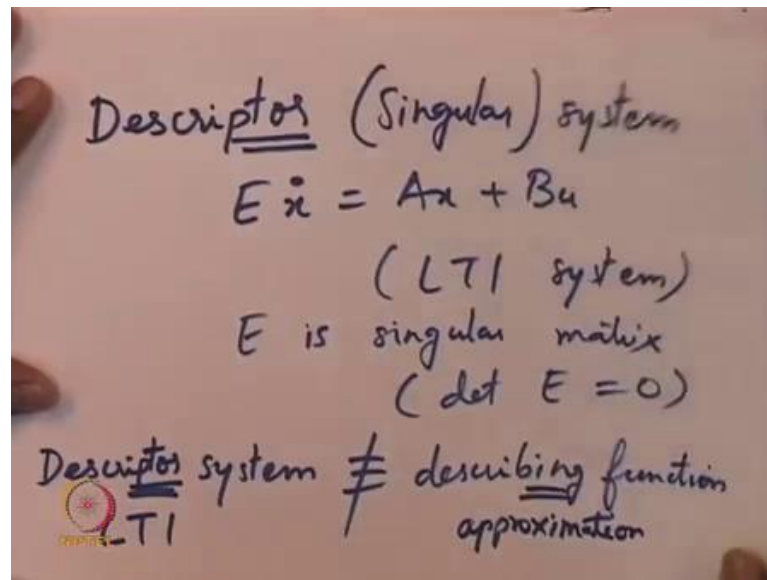 Descriptor (Singular) system
Eẋ = Ax + Bu
(LTI system)
E is singular matrix
(det E = 0)
Descriptor system ≢ describing function
LTI approximation